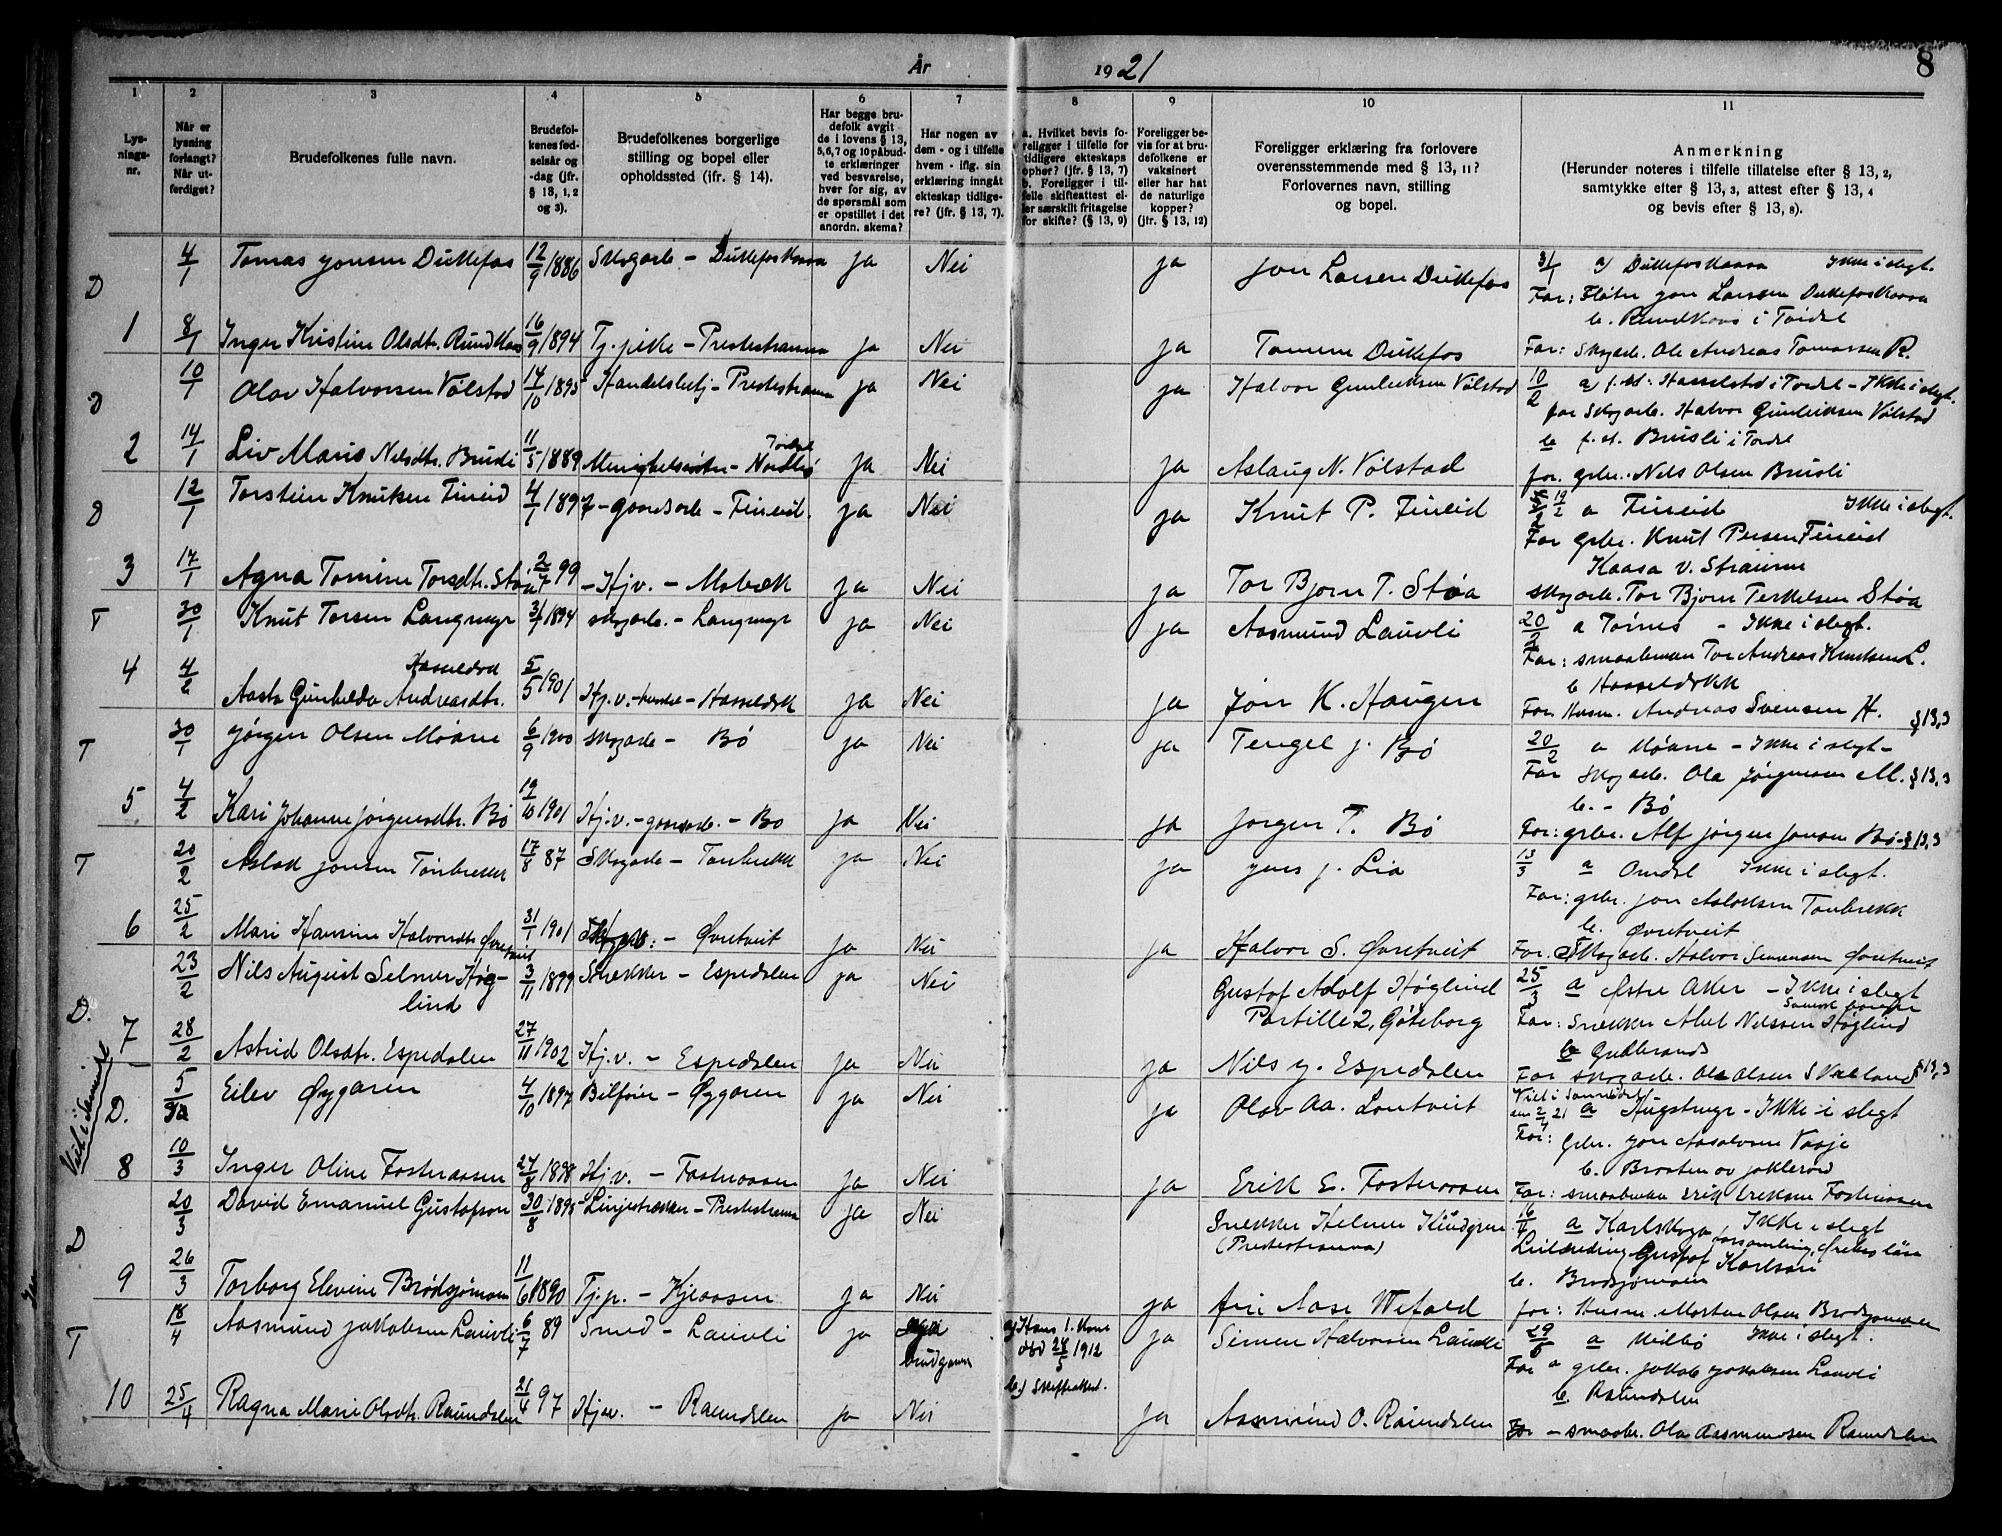 År 1921 8
1 2 3 4 5 6 7 8 9 10 11
Lys-
nings-
nr.
Når er
lysning
forlangt?
Når ut-
ferdiget?
Brudefolkenes fulle navn.
Brudefol-
kenes fød-
selsår og
-dag (jfr.
§ 13, 1, 2
og 3).
Brudefolkenes borgerlige
stilling og bopel eller
opholdssted (ifr. § 14).
Har begge bru-
defolk avgit
de i lovens § 13,
5, 6, 7 og 10 påbud-
te erklæringer
ved besvarelse,
hver for sig, av
de spørsmål som
er opstillet i det
anordn. skema?
Har nogen av
dem - og i tilfelle
hvem - iflg. sin
erklæring inngåt
ekteskap tidlige-
re? (jfr. § 13, 7).
a. Hvilket bevis fo-
religger i tilfelle for
tidligere ekteskaps
ophør? (jfr. § 13, 7)
b. Foreligger i til-
felle skifteattest el-
ler særskilt fritagelse
for skifte? (§ 13, 9)
Foreligger be-
vis for at bru-
defolkene er
vaksinert
eller har hat
de naturlige
kopper?
(jfr. § 13, 12)
Foreligger erklæring fra forlovere
overensstemmende med § 13, 11?
Forlovernes navn, stilling
og bopel.
Anmerkning
(Herunder noteres i tilfelle tillatelse efter § 13, 2,
samtykke efter § 13, 3, attest efter § 13, 4
og bevis efter § 13, 8).
D 4/1 Tomas Jonsen Dukkefos 12/9 1886 Skogarb. - Dukkefoskaasa ja Nei ja Jon Larsen Dukkefos 3/1 a) Dukkefoskaasa Ikke i slegt.
Far: Fløter Jon Larsen Dukkefoskaasa
b. Rundkaas i Tørdal
1 8/1 Inger Kristine Olsdtr. Rundkaas 16/9 1894 Tj. pike - Prestestranna ja Nei ja Tomine Dukkefos Far: Skogarb. Ole Andreas Tomassen R.
D 10/1 Olav Halvorsen Vølstad 14/10 1895 Handelsbetj - Prestestranna ja Nei ja Halvor Gunleiksen Vølstad 10/2 a) f. st. Hasselstad i Tørdal - Ikke i slegt.
far Skogarb. Halvor Gunleiksen Vølstad
b f. st. Brusli i Tørdal
2 14/1 Liv Maris Nilsdtr. Brusli 11/5 1889 Menighetssøster - Nordbø Tørdal ja Nei ja Aslaug N. Vølstad far. gbr. Nils Olsen Brusli
D 12/1 Torstein Knutsen Fineid 4/1 1897 - gaardsarb - Fineid. ja Nei ja Knut P. Fineid 19/2 a Fineid Ikke i slegt.
Far gbr. Knut Persen Fineid
Kaasa v. Straume
3 17/1 Agna Tomine Torsdtr. Støa 2/7 99 - Hj.v. - Mobæk ja Nei ja Tor Bjørn T. Støa skogarb. Tor Bjørn Terkelsen Støa
T 30/1 Knut Torsen Langmyr 3/1 1894 skogarb. - Langmyr ja Nei ja Aasmund Lauvli 20/2 a Tørnes - Ikke i slegt.
Far: smaabrman Tor Andreas Knutsen L.
b Hasseldokk
4 4/2 Aasta Gunhilda Andreasdtr. Hasseldok 5/5 1901 Hj.v. - Hasseldokk ja Nei ja Jon K. Haugen Far. Husm. Andreas Svensen H. §13,3
T 30/1 Jørgen Olsen Moane 6/9 1900 skogarb - Bø ja Nei ja Tengel J. Bø 20/2 a Moane - Ikke i slegt -
Far Skogarb. Ola Jørgensen M. §13,3
b. - Bø
5 4/2 Kari Johanne Jørgensdtr. Bø 19/10 1901 Hj.v. - gaardarb. - Bø ja Nei ja Jørgen T. Bø Far: gbr. Alf Jørgen Jonsen Bø - §13,3
T 20/2 Aslak Jonsen Tønbrekk 17/8 87 Skogarb - Tonbrekk ja Nei ja Jens J. Lia 13/3 a Omdal Ikke i slegt.
Far: gbr. Jon Aslaksen Tonbrekk
b. Øvretveit
6 25/2 Mari Hansine Halvorsdtr. Øvretveit 31/1 1901 - Øvretveit ja Nei ja Halvor S. Øvretveit Far. Skogarb. Halvor Simonsen Øvretveit
D. 23/2 Nils August Selmer Høg-
lind 3/11 1899 Snekker - Espedalen ja Nei Gustof Adolf Høglind
Partille 2, Göteborg 25/3 a Østre Aker - Ikke i slegt
Svensk borger
Far: Snekker Abel Nilssen Høglind
b Gudbrands
7 28/2 Astrid Olsdtr. Espedalen 27/11 1902 Hj.v. - Espedalen ja Nei ja Nils J. Espedalen Far skogarb. Ole Olsen Skaaland §13,3
Viet i Sannidal
D. 5/3 Eilev Øygaren 4/10 1897 Bilfører - Øygaren ja Nei ja Olav Aa. Lontveit Viet i Sannidal
den 2/4 21 a Haugstmyr - Ikke i slegt
Far: gbr. Jon Aasolvsen Vaaje
b. Braaten av Jøklerød
8 10/3 Inger Oline Fosteraasen 27/8 1898 Hj.v. - Fosteraasen ja Nei ja Erik E. Fosteraasen Far: smaabrman Erik Eriksen Fosteraasen
D 20/3 David Emanuel Gustafson 30/8 1895 Linjestrekker - Prestestranna ja Nei Snekker Helmer Kindgren
(Prestestranna) 16/4 a Karlskoga församling, Örebro län Ikke i slegt
Gustaf Karlsson
b. Brødsjømoen
9 26/3 Torborg Elevine Brødsjømoen 11/6 1890 Tj.p. - Kjeaasen ja Nei ja Aase Wefald far: Husm. Morten Olsen Brødsjømoen
T 18/4 Aasmund Jakobsen Lauvli 6/7 89 Smed - Lauvli ja brudgom a) Hans 1. Kone
død 24/5 1912
b.) Skifteattest. ja Simen Halvorsen Lauvli 29/5 a Midbø Ikke i slegt.
Far a gbr. Jakob Jakobsen Lauvli
b. Raundalen
10 25/4 Ragna Marie Olsdtr. Raundalen 21/4 97 Hj.v. - Raundalen ja Nei ja Aasmund O. Raundalen Far - smaabr. Ola Aasmundsen Raundalen